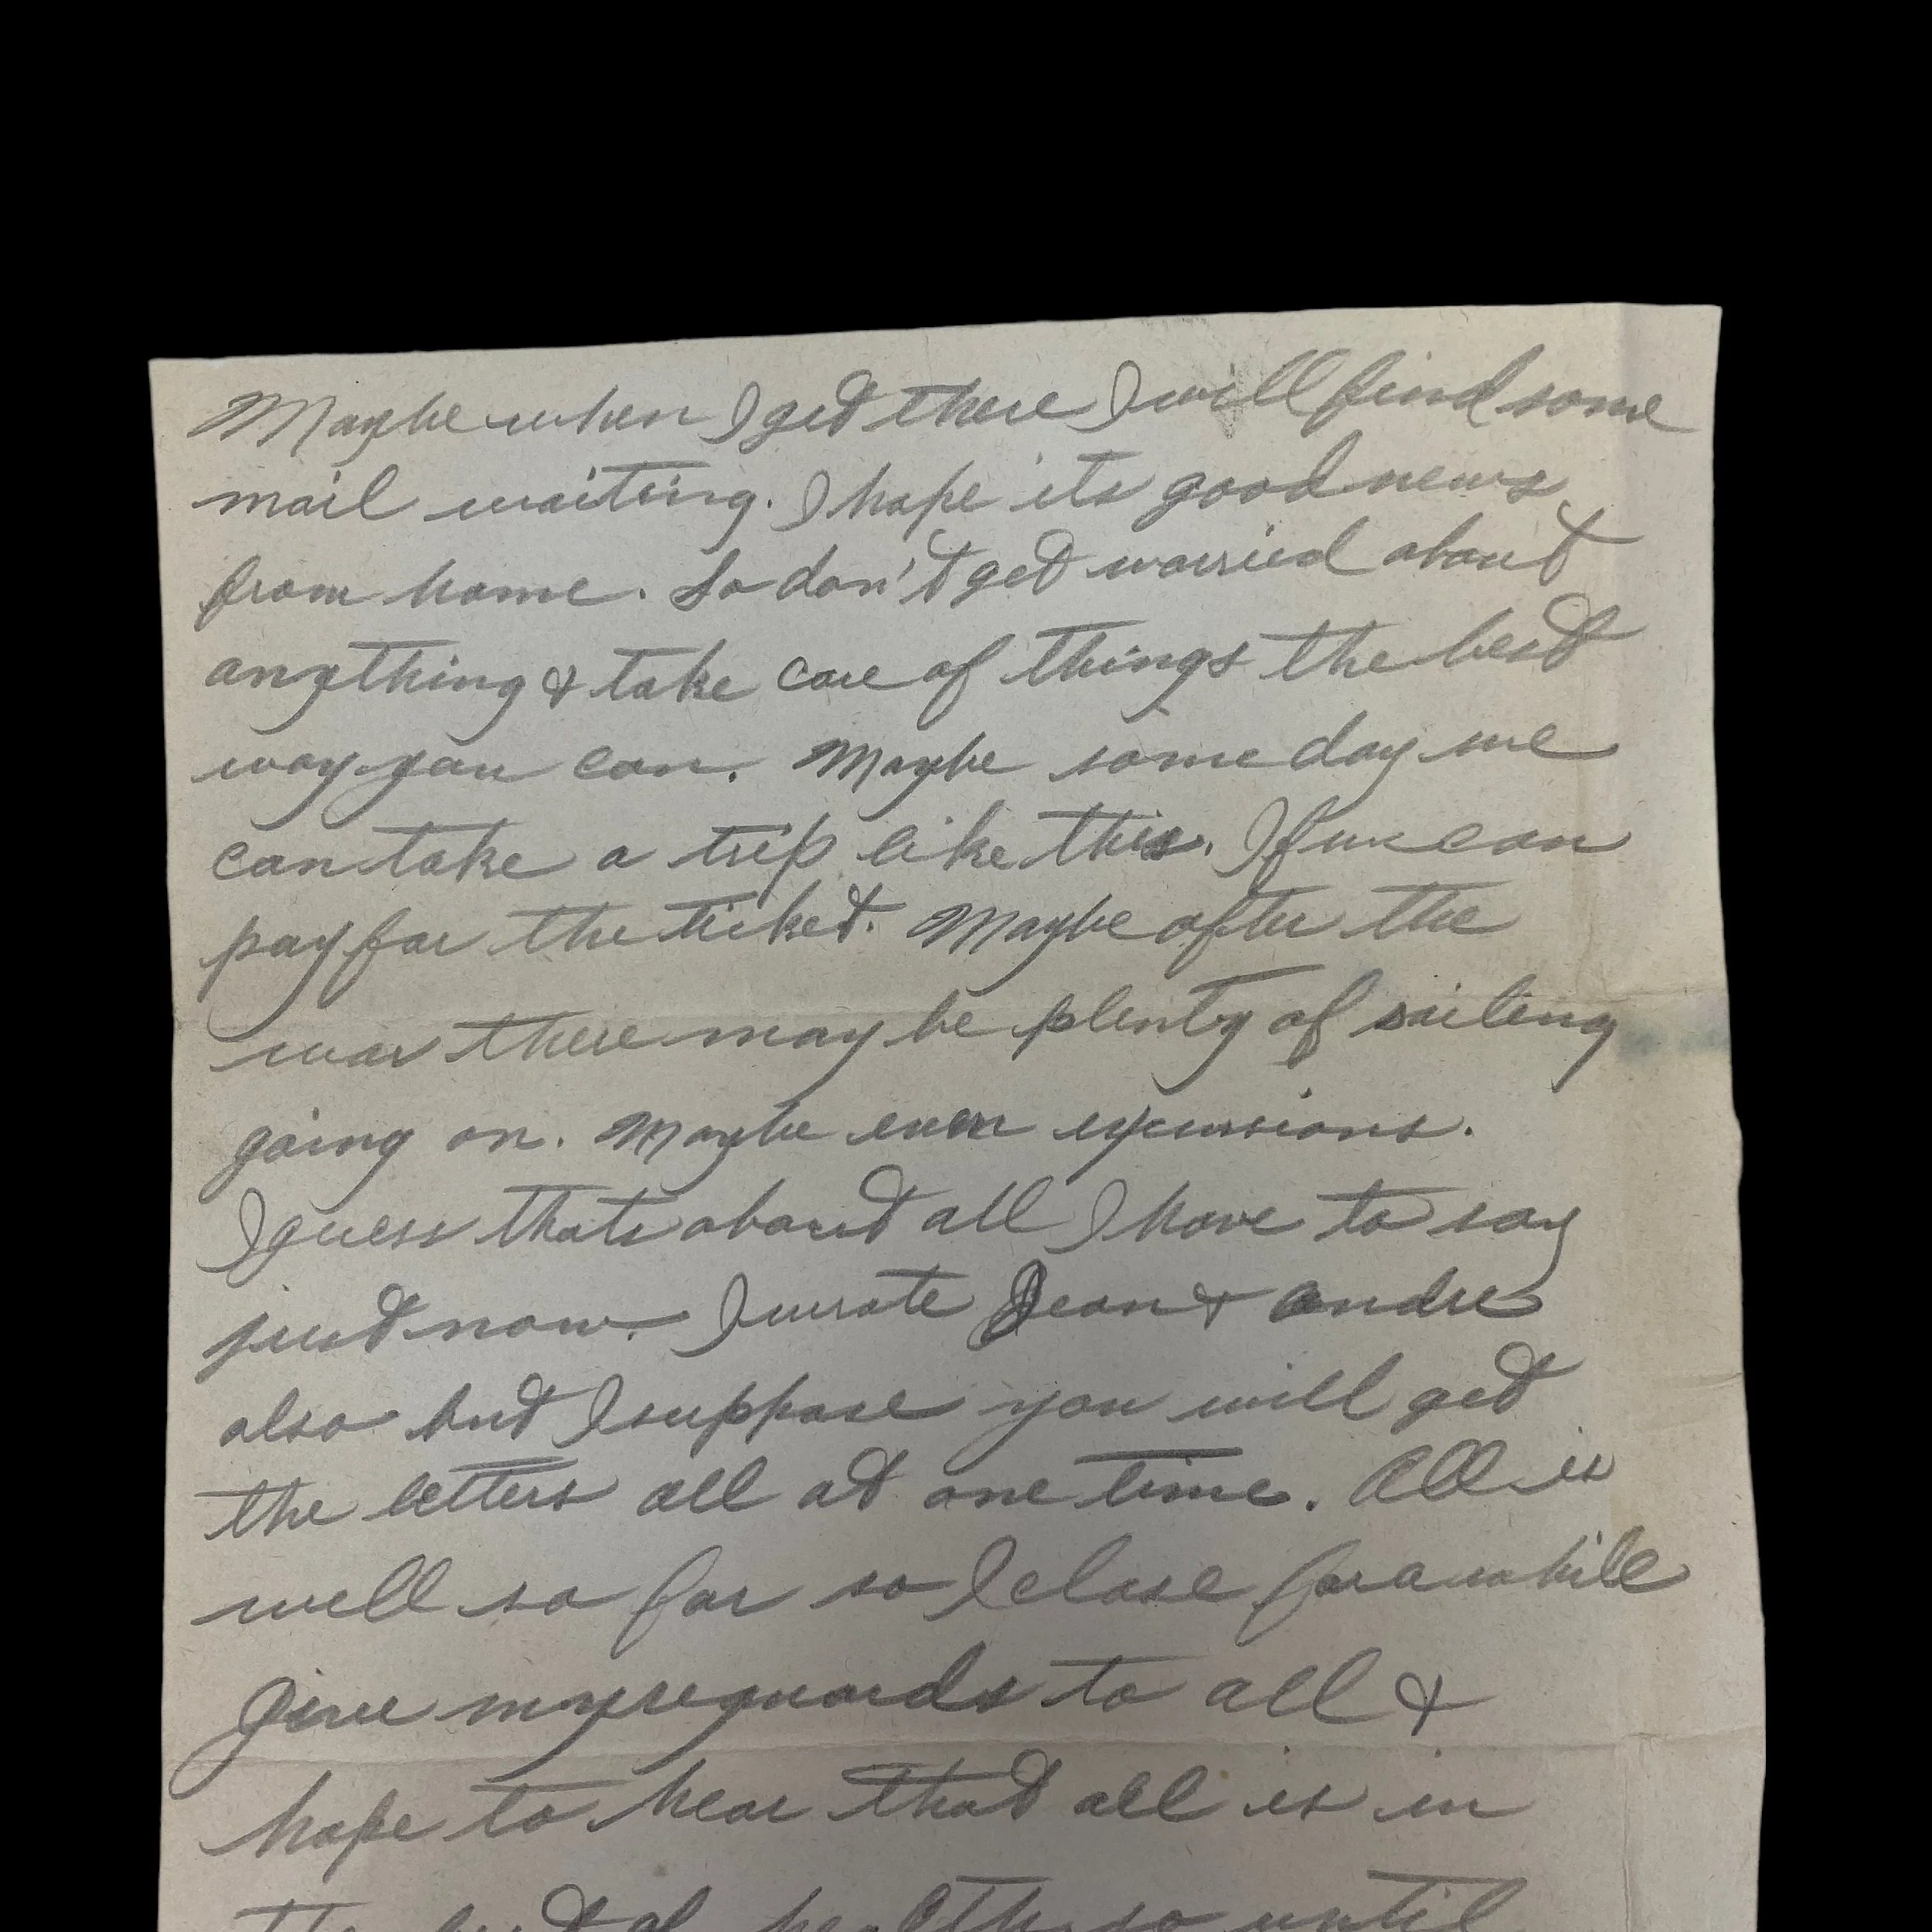 Maybe when I get there I will find some
mail waiting. I hope its good news
from home. So don't get worried about
anything & take care of things the best
way you can. Maybe some day we
can take a trip like this. If we can
pay for the ticket. Maybe after the
war there may be plenty of sailing
going on. Maybe even excursions.
I guess thats about all I have to say
just now. I wrote Jean & Andre
also but I suppose you will get
the letters all at one time. All is
well so far so I close for awhile
Give my reguards to all &
hope to hear that all is in
the best of health so until